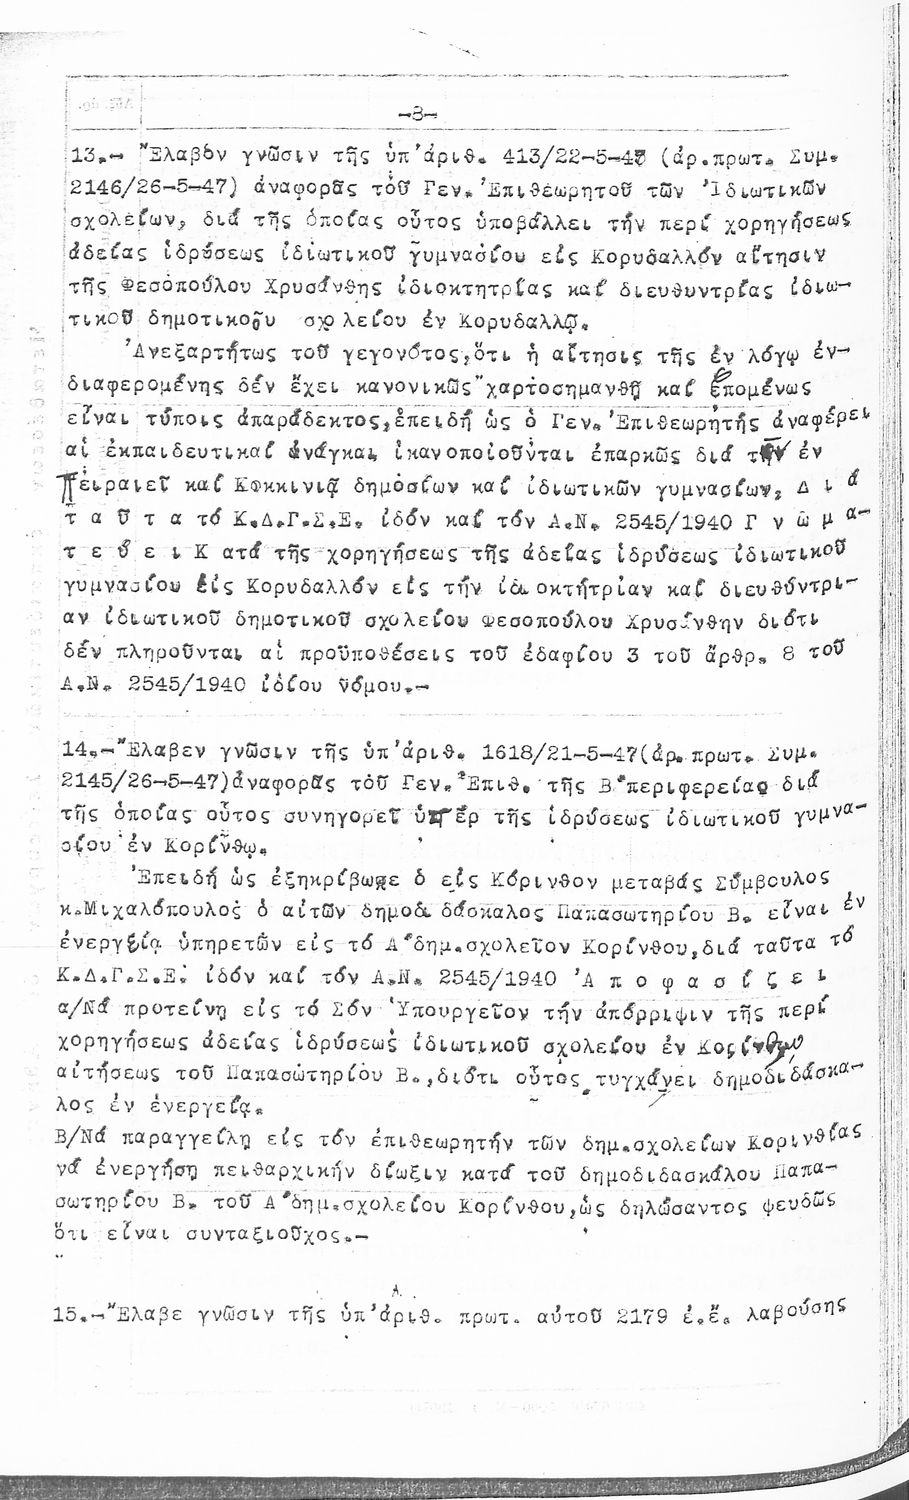 -8-
13.- Ἔλαβον γνῶσιν τῆς ὑπ'ἀριθ. 413/22-5-47 (ἀρ.πρωτ. Συμ.
2146/26-5-47) ἀναφορᾶς τοῦ Γεν. Ἐπιθεωρητοῦ τῶν Ἰδιωτικῶν
σχολείων, διά τῆς ὁποίας οὗτος ὑποβάλλει τήν περί χορηγήσεως
ἀδείας ἱδρύσεως ἰδιωτικοῦ γυμνασίου εἰς Κορυδαλλόν αἴτησιν
τῆς Φεσοπούλου Χρυσάνθης ἰδιοκτητρίας καί διευθυντρίας ἰδιω-
τικοῦ δημοτικοῦ σχολείου ἐν Κορυδαλλῷ.
Ἀνεξαρτήτως τοῦ γεγονότος,ὅτι ἡ αἴτησις τῆς ἐν λόγῳ ἐν-
διαφερομένης δέν ἔχει κανονικῶς χαρτοσημανθῇ καί ἑπομένως
εἶναι τύποις ἀπαράδεκτος,ἐπειδή ὡς ὁ Γεν. Ἐπιθεωρητής ἀναφέρει
αἱ ἐκπαιδευτικαί ἀνάγκαι ἱκανοποιοῦνται ἐπαρκῶς διά τῶν ἐν
Πειραιεῖ καί Κοκκινιᾷ δημοσίων καί ἰδιωτικῶν γυμνασίων, Δ ι ά
τ α ῦ τ α τό Κ.Δ.Γ.Σ.Ε. ἰδόν καί τόν Α.Ν. 2545/1940 Γ ν ω μ α-
τ ε ύ ε ι Κ ατά τῆς χορηγήσεως τῆς ἀδείας ἱδρύσεως ἰδιωτικοῦ
γυμνασίου εἰς Κορυδαλλόν εἰς τήν ἰδιοκτήτριαν καί διευθύντρι-
αν ἰδιωτικοῦ δημοτικοῦ σχολείου Φεσοπούλου Χρυσάνθην διότι
δέν πληροῦνται αἱ προϋποθέσεις τοῦ ἐδαφίου 3 τοῦ ἄρθρ. 8 τοῦ
Α.Ν. 2545/1940 ἰδίου νόμου.-
14.-Ἔλαβεν γνῶσιν τῆς ὑπ'ἀριθ. 1618/21-5-47(ἀρ.πρωτ. Συμ.
2145/26-5-47)ἀναφορᾶς τοῦ Γεν. Ἐπιθ. τῆς Β΄περιφερείας διά
τῆς ὁποίας οὗτος συνηγορεῖ ὑπέρ τῆς ἱδρύσεως ἰδιωτικοῦ γυμνα-
σίου ἐν Κορίνθῳ.
Ἐπειδή ὡς ἐξηκρίβωσε ὁ εἰς Κόρινθον μεταβάς Σύμβουλος
κ.Μιχαλόπουλος ὁ αἰτῶν δημοδιδάσκαλος Παπασωτηρίου Β. εἶναι ἐν
ἐνεργείᾳ ὑπηρετῶν εἰς τό Α΄δημ.σχολεῖον Κορίνθου,διά ταῦτα τό
Κ.Δ.Γ.Σ.Ε. ἰδόν καί τόν Α.Ν. 2545/1940 Ἀ π ο φ α σ ί ζ ε ι
α/Νά προτείνῃ εἰς τό Σόν Ὑπουργεῖον τήν ἀπόρριψιν τῆς περί
χορηγήσεως ἀδείας ἱδρύσεως ἰδιωτικοῦ σχολείου ἐν Κορίνθῳ
αἰτήσεως τοῦ Παπασωτηρίου Β.,διότι οὗτος τυγχάνει δημοδιδάσκα-
λος ἐν ἐνεργείᾳ.
Β/Νά παραγγείλῃ εἰς τόν ἐπιθεωρητήν τῶν δημ.σχολείων Κορινθίας
νά ἐνεργήσῃ πειθαρχικήν δίωξιν κατά τοῦ δημοδιδασκάλου Παπα-
σωτηρίου Β. τοῦ Α΄δημ.σχολείου Κορίνθου,ὡς δηλώσαντος ψευδῶς
ὅτι εἶναι συνταξιοῦχος.-
15.-Ἔλαβε γνῶσιν τῆς ὑπ'ἀριθ. πρωτ. αὐτοῦ 2179 ἐ.ἔ. λαβούσης